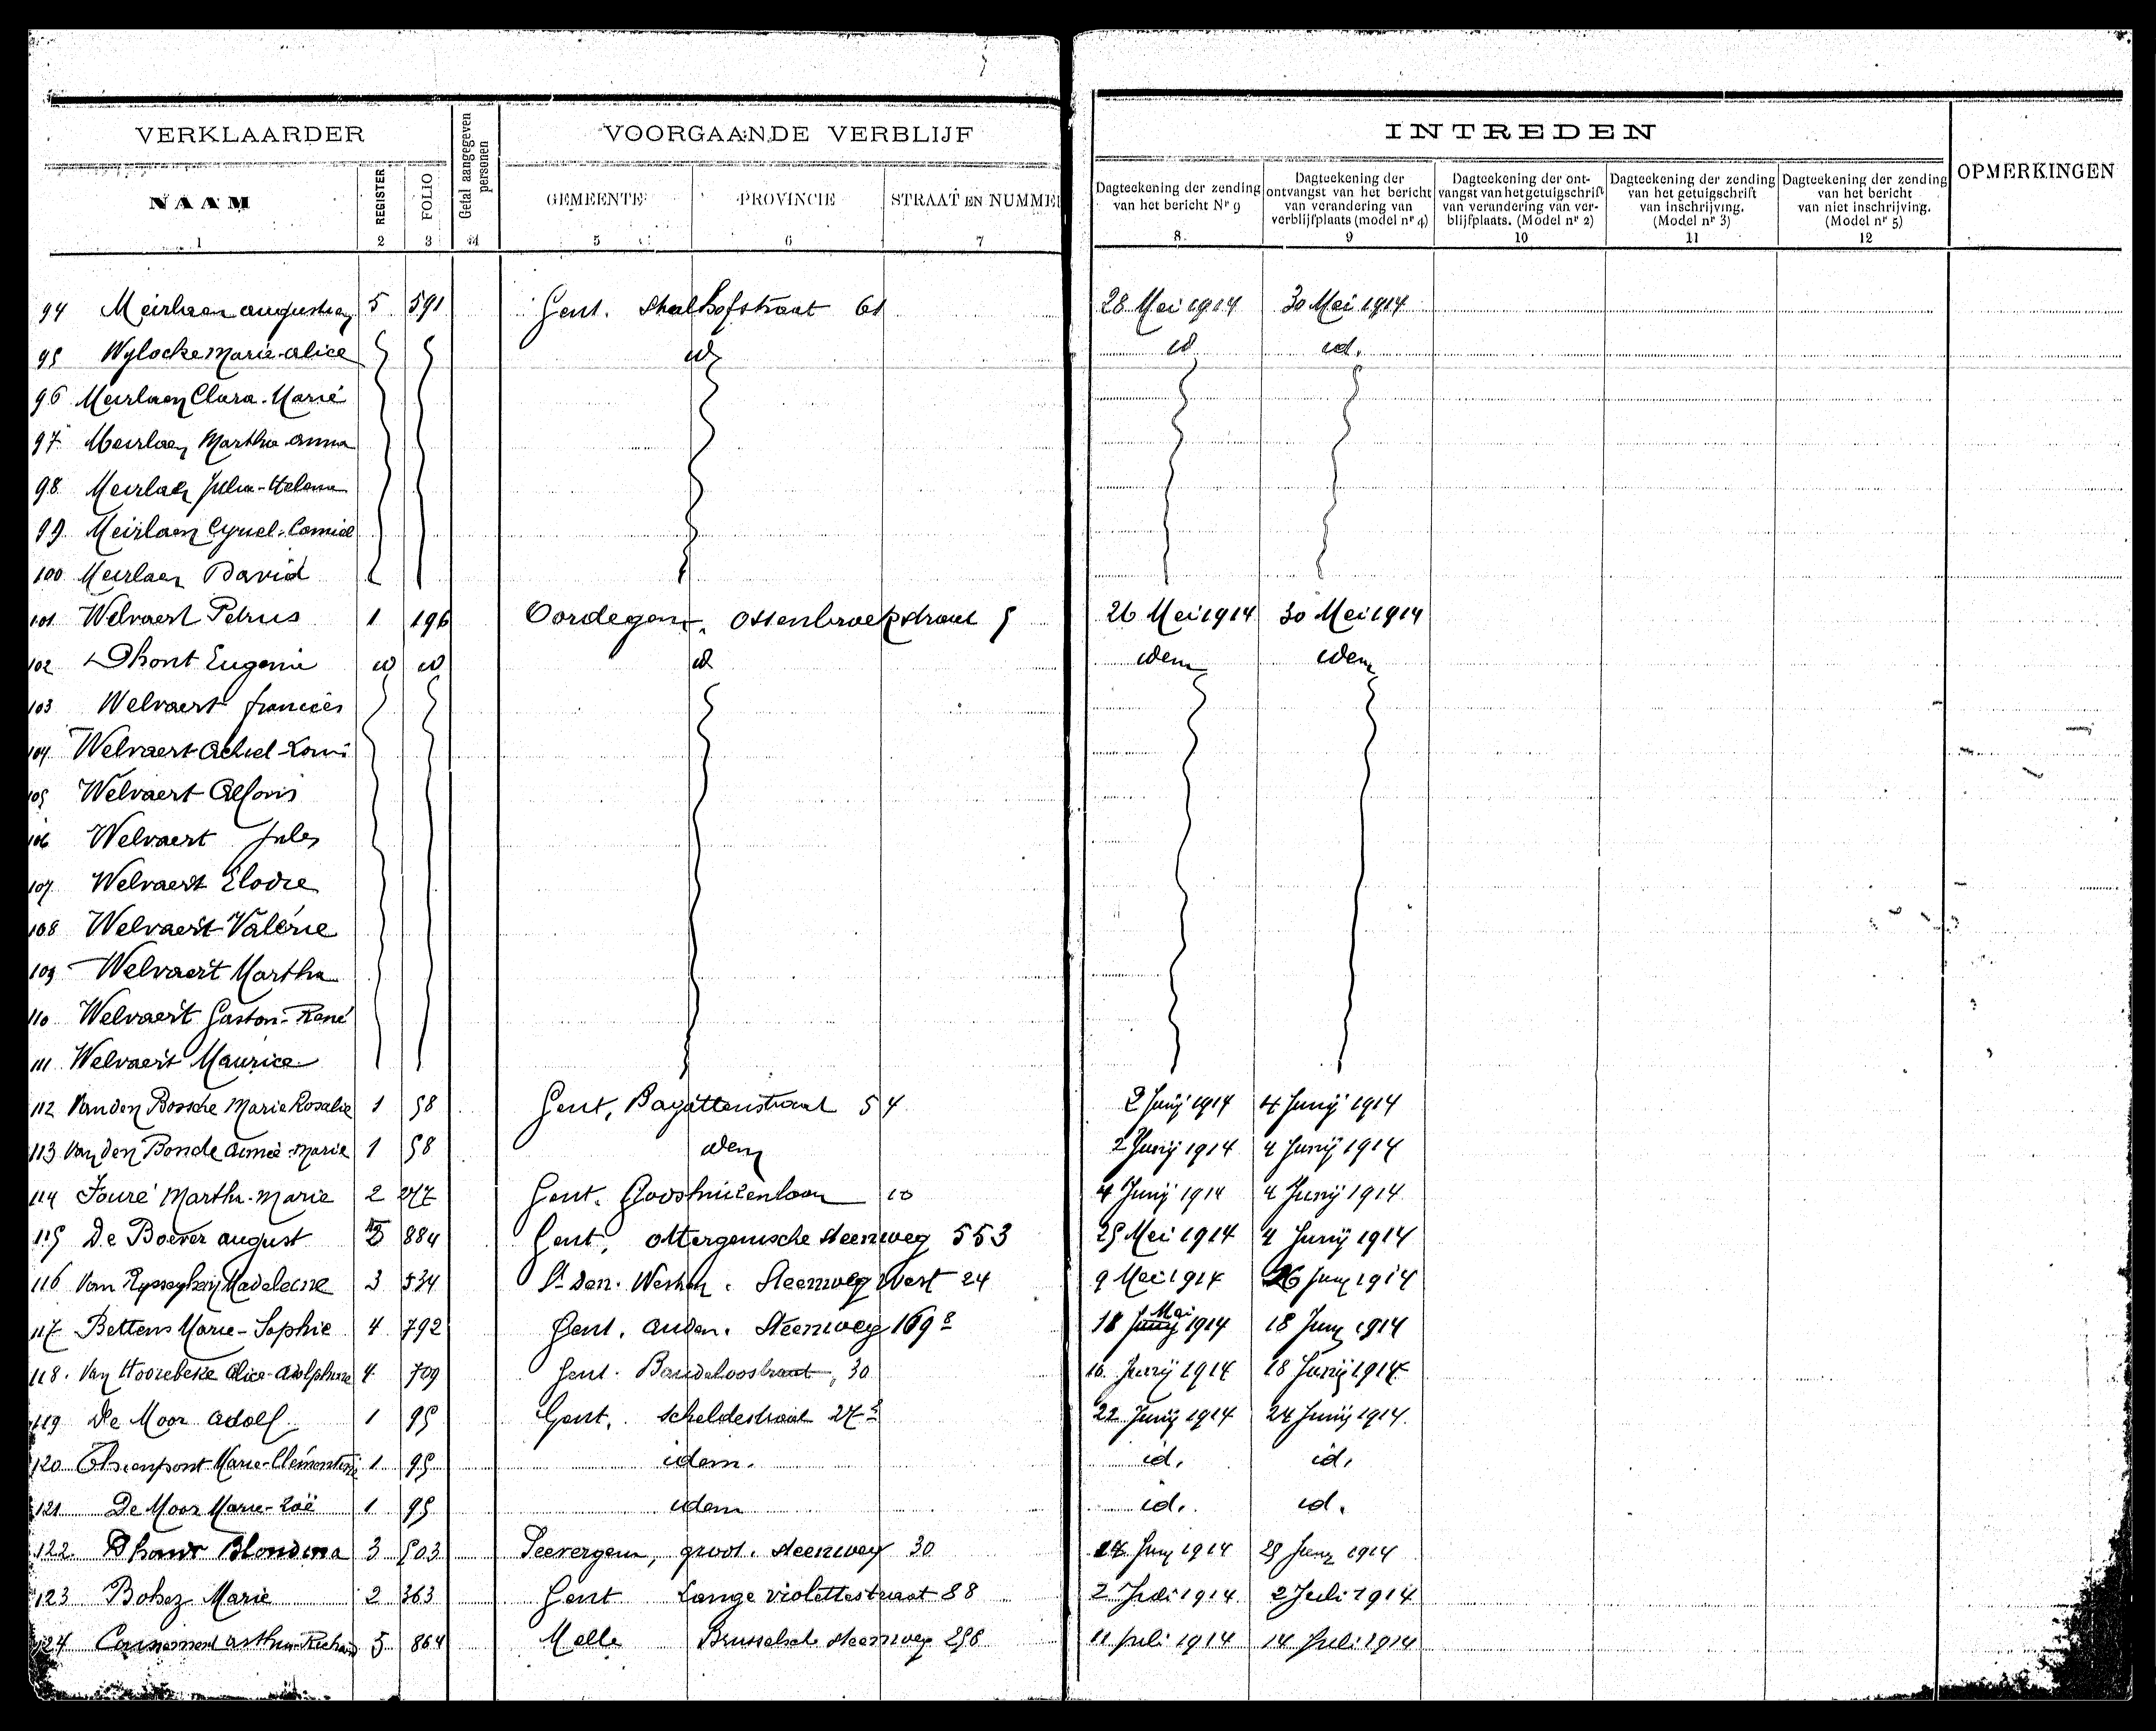 VERKLAARDER Getal aangegeven personen VOORGAANDE VERBLIJF INTREDEN OPMERKINGEN
NAAM REGISTER FOLIO GEMEENTE PROVINCIE STRAAT EN NUMMER
Dagteekening der zending van het bericht Nr 9
Dagteekening der ontvangst van het bericht van verandering van verblijfplaats (model nr 4)
Dagteekening der ontvangst van het getuigschrift van verandering van verblijfplaats. (Model nr 2)
Dagteekening der zending van het getuigschrift van inschrijving. (Model nr 3)
Dagteekening der zending van het bericht van niet inschrijving. (Model nr 5)
1 2 3 4 5 6 7 8 9 10 11 12
94 Meirlaen 5 591 Gent. 61 28 Mei 1914 30 Mei 1914
95 Wylocke Marie-Alice id id id.
96 Meirlaen Clara-Marie
97 Meirlaen Martha Anna
98 Meirlaen Julia-Helena
99 Meirlaen Cyriel-Camiel
100 Meirlaen David
101 Welvaert Petrus 1 196 Oordegem. 26 Mei 1914 30 Mei 1914
102 Dhont Eugenie id id id idem idem
103 Welvaert
104 Welvaert Achiel-Louis
105 Welvaert Alfons
106 Welvaert Jules
107 Welvaert Elodie
108 Welvaert Valérie
109 Welvaert Martha
110 Welvaert Gaston-René
111 Welvaert Maurice
112 Van den Bossche Marie Rosalie 1 58 Gent, Bagattenstraat 54 2 Junij 1914 4 Junij 1914
113 Van den Bonde Aimé-Marie 1 58 idem 2 Junij 1914 4 Junij 1914
114 Fouré Martha-Marie 2 277 Gent. 10 4 Junij 1914 4 Junij 1914
115 De Boever August 884 Gent, Ottergemsche Steenweg 553 25 Mei 1914 4 Junij 1914
116 Van Madeleine 3 534 St Den. Westrem. Steenweg West 24 9 Mei 1914 16 Junij 1914
117 Bettens Marie-Sophie 4 792 Gent. Auden. Steenweg 169 18 Mei 1914 18 Junij 1914
118. Van Hoorebeke Alice-Adolphine 4 709 Gent. Baudeloostraat, 30 16 Junij 1914 18 Junij 1914
119 De Moor Adolf 1 95 Gent. Scheldestraat 27 22 Junij 1914 24 Junij 1914.
120 Thienpont Marie-Clémentine 1 95 idem. id. id.
121 De Moor Marie-Zoë 1 95 idem id. id.
122. Dhont Blondina 3 503 Seevergem, groot. Steenweg 30 Junij 1914 25 Junij 1914
123 Bohez Marie 2 363 Gent Lange Violettestraat 88 2 Juli 1914 2 Juli 1914
124 5 864 Melle Brusselsch Steenweg 298 11 Juli 1914 14 Juli 1914